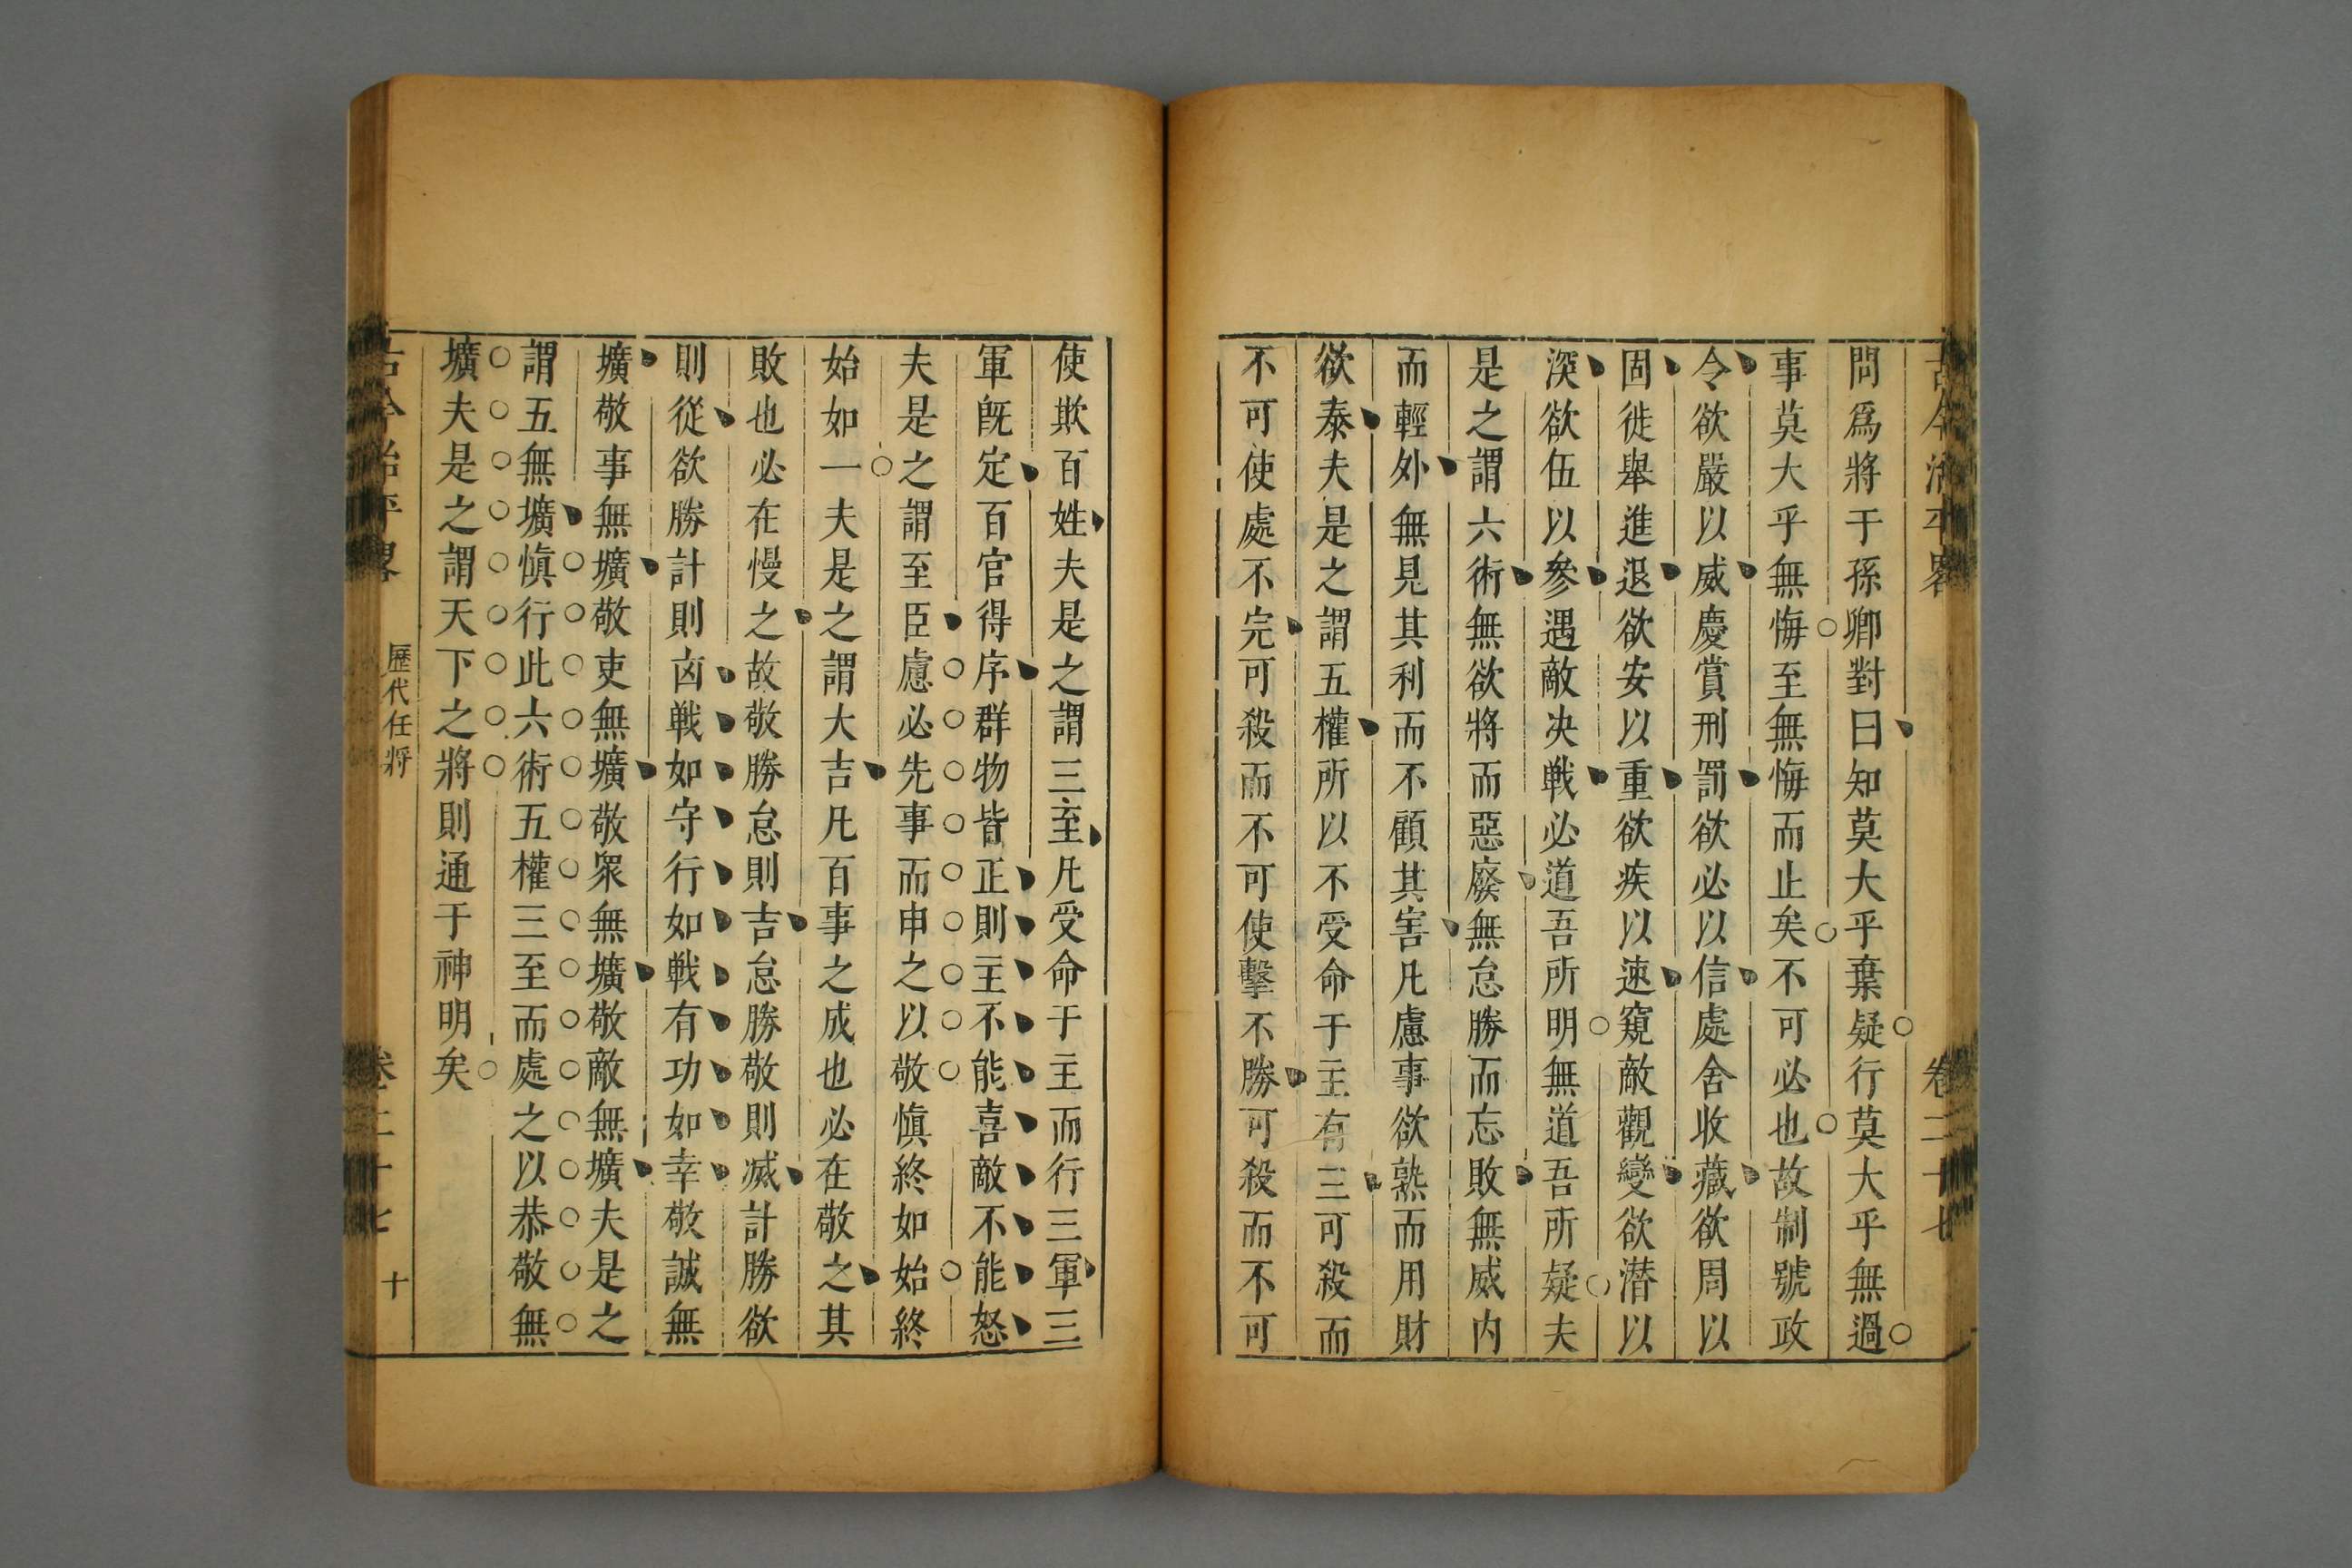 古今治平畧 卷二十七
問爲將于孫卿對曰知莫大乎棄疑行莫大乎無過
事莫大乎無悔至無悔而止矣不可必也故制號政
令欲嚴以威慶賞刑罰欲必以信處舍收藏欲周以
固徙舉進退欲安以重欲疾以速窺敵觀變欲潛以
深欲伍以參遇敵决戰必道吾所明無道吾所疑夫
是之謂六術無欲將而惡廢無怠勝而忘敗無威内
而輕外無見其利而不顧其害凡慮事欲熟而用財
欲泰夫是之謂五權所以不受命于主有三可殺而
不可使處不完可殺而不可使擊不勝可殺而不可
使欺百姓夫是之謂三至凡受命于主而行三軍三
軍旣定百官得序群物皆正則主不能喜敵不能怒
夫是之謂至臣慮必先事而申之以敬愼終如始終
始如一夫是之謂大吉凡百事之成也必在敬之其
敗也必在慢之故敬勝怠則吉怠勝敬則滅計勝欲
則從欲勝計則㐫戰如守行如戰有功如幸敬誠無
壙敬事無壙敬吏無壙敬衆無壙敬敵無壙夫是之
謂五無壙愼行此六術五權三至而處之以恭敬無
壙夫是之謂天下之將則通于神明矣
古今治平畧 歷代任將 卷二十七 十